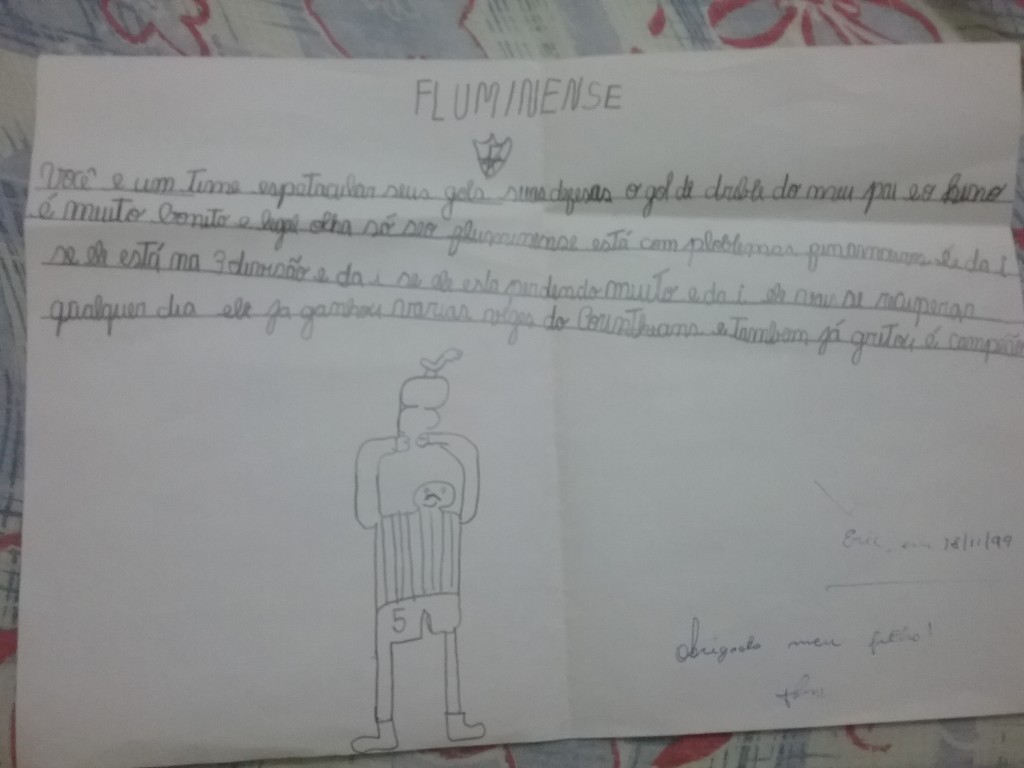 FLUMINENSE
Você e um Time espetacular seus gols suas defesas o gol de drible do meu pai e o hino
é muito bonito e legal olha só se o fluminense está com ploblemas e da i
se ele está na 3 divisão e da i se ele esta perdendo muito e da i ele vai se recuperar
qualquer dia ele ja ganhou varias vezes do Corinthians e tambem já gritou é campeão
5
Eric, em 18/11/99
Obrigado meu filho!